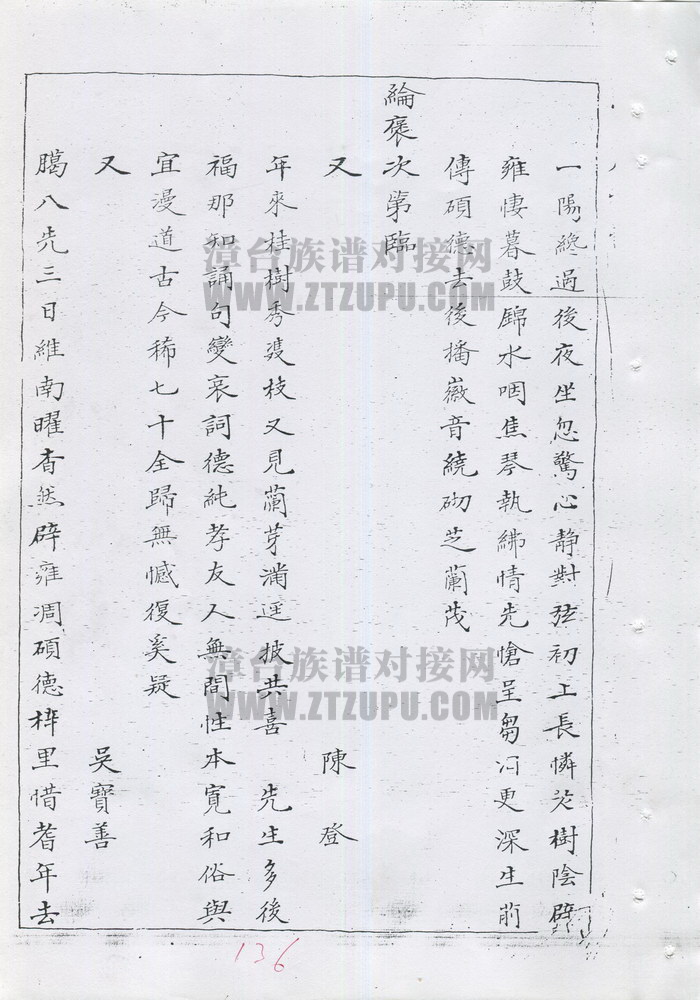 一陽纔過後夜坐忽驚心靜對弦初上長憐茨樹陰辟
雍悽暮鼓錦水咽焦琴執紼情先愴呈芻泪更深生前
傳碩德去後播徽音繞砌芝蘭茂
綸褒次第臨
又 陳登
年來桂樹秀雙枝又見蘭芽滿逕披共喜 先生多後
福那知誦句變哀詞德純孝友人無間性本寬和俗與
宜漫道古今稀七十全歸無憾復奚疑
又 吳寶善
臈八先三日維南曜杳然辟雍凋碩德梓里惜耆年去
漳台族谱对接网
WWW.ZTZUPU.COM
漳台族谱对接网
WWW.ZTZUPU.COM
136